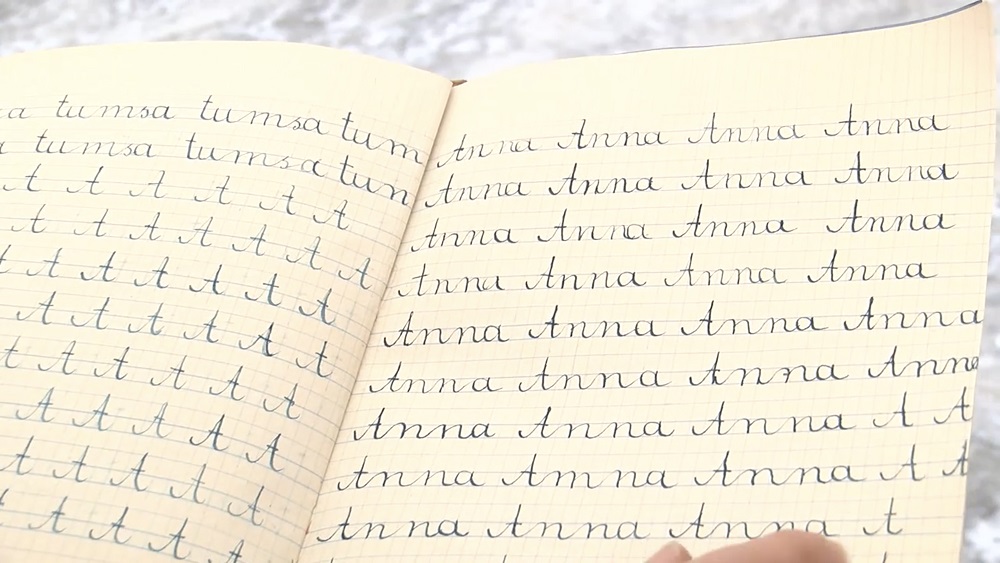 a tumsa tumsa tum
tumsa tumsa tum
A A A A A A
A A A A A A
A A A A A A
A A A A A A
A A A A A
A A A A A
A A A A A
A A A A
Anna Anna Anna Anna
Anna Anna Anna Anna
Anna Anna Anna Anna
Anna Anna Anna Anna
Anna Anna Anna Anna
Anna Anna Anna Anna
Anna Anna Anna A A
Anna Amna Anna A A
Anna Anna Anna A